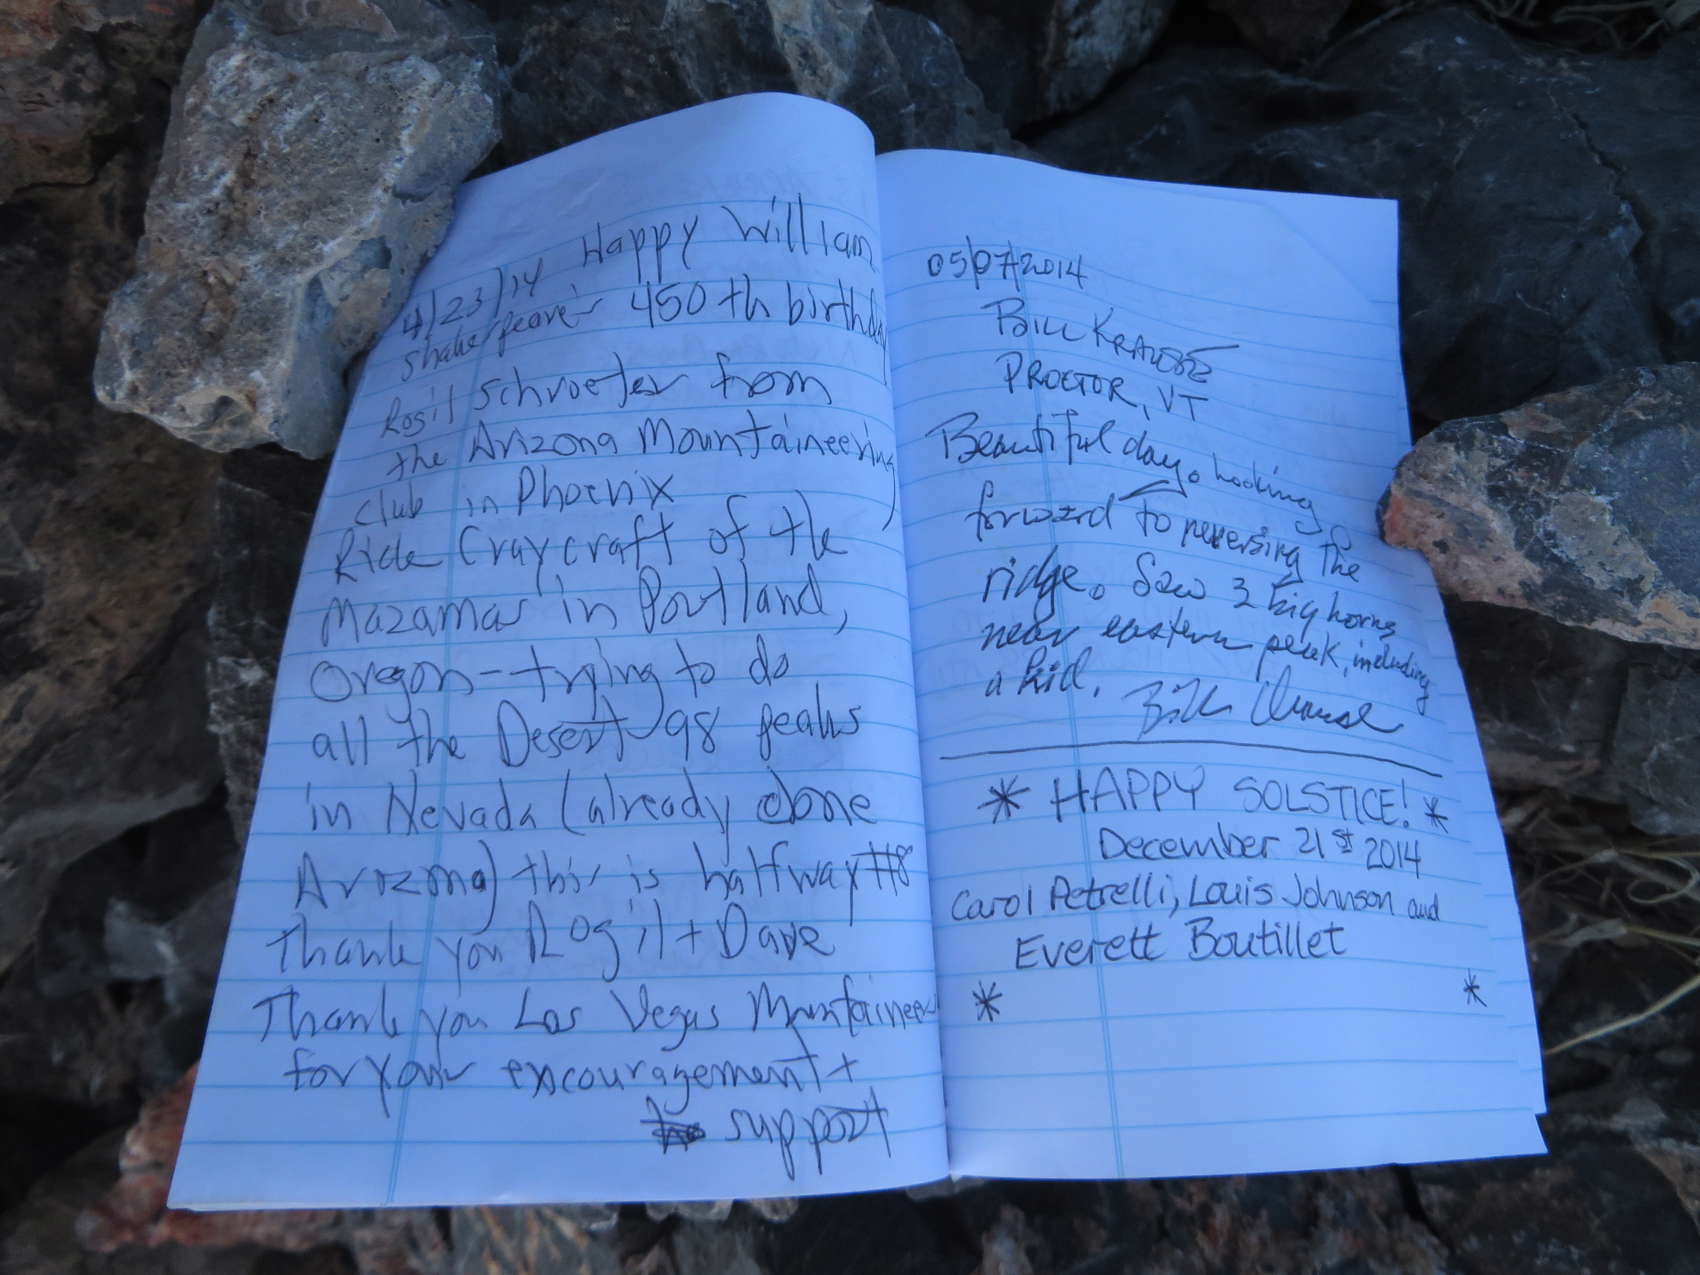 4/23/14 Happy William
Shakespeare's 450th birthday
Rogil Schroeter from
the Arizona Mountaineering
club in Phoenix
Rick Craycraft of the
Mazamas in Portland,
Oregon - trying to do
all the Desert 98 peaks
in Nevada (already done
Arizona) this is halfway #8
Thank you Rogil + Dave
Thank you Las Vegas Mountaineers
for your encouragement +
support
05/07/2014
BILL KRAUSE
PROCTOR, VT
Beautiful day. Looking
forward to reversing the
ridge. Saw 3 big horns
near eastern peak, including
a kid. Bill Krause
* HAPPY SOLSTICE! *
December 21st 2014
Carol Petrelli, Louis Johnson and
Everett Boutillet
* *